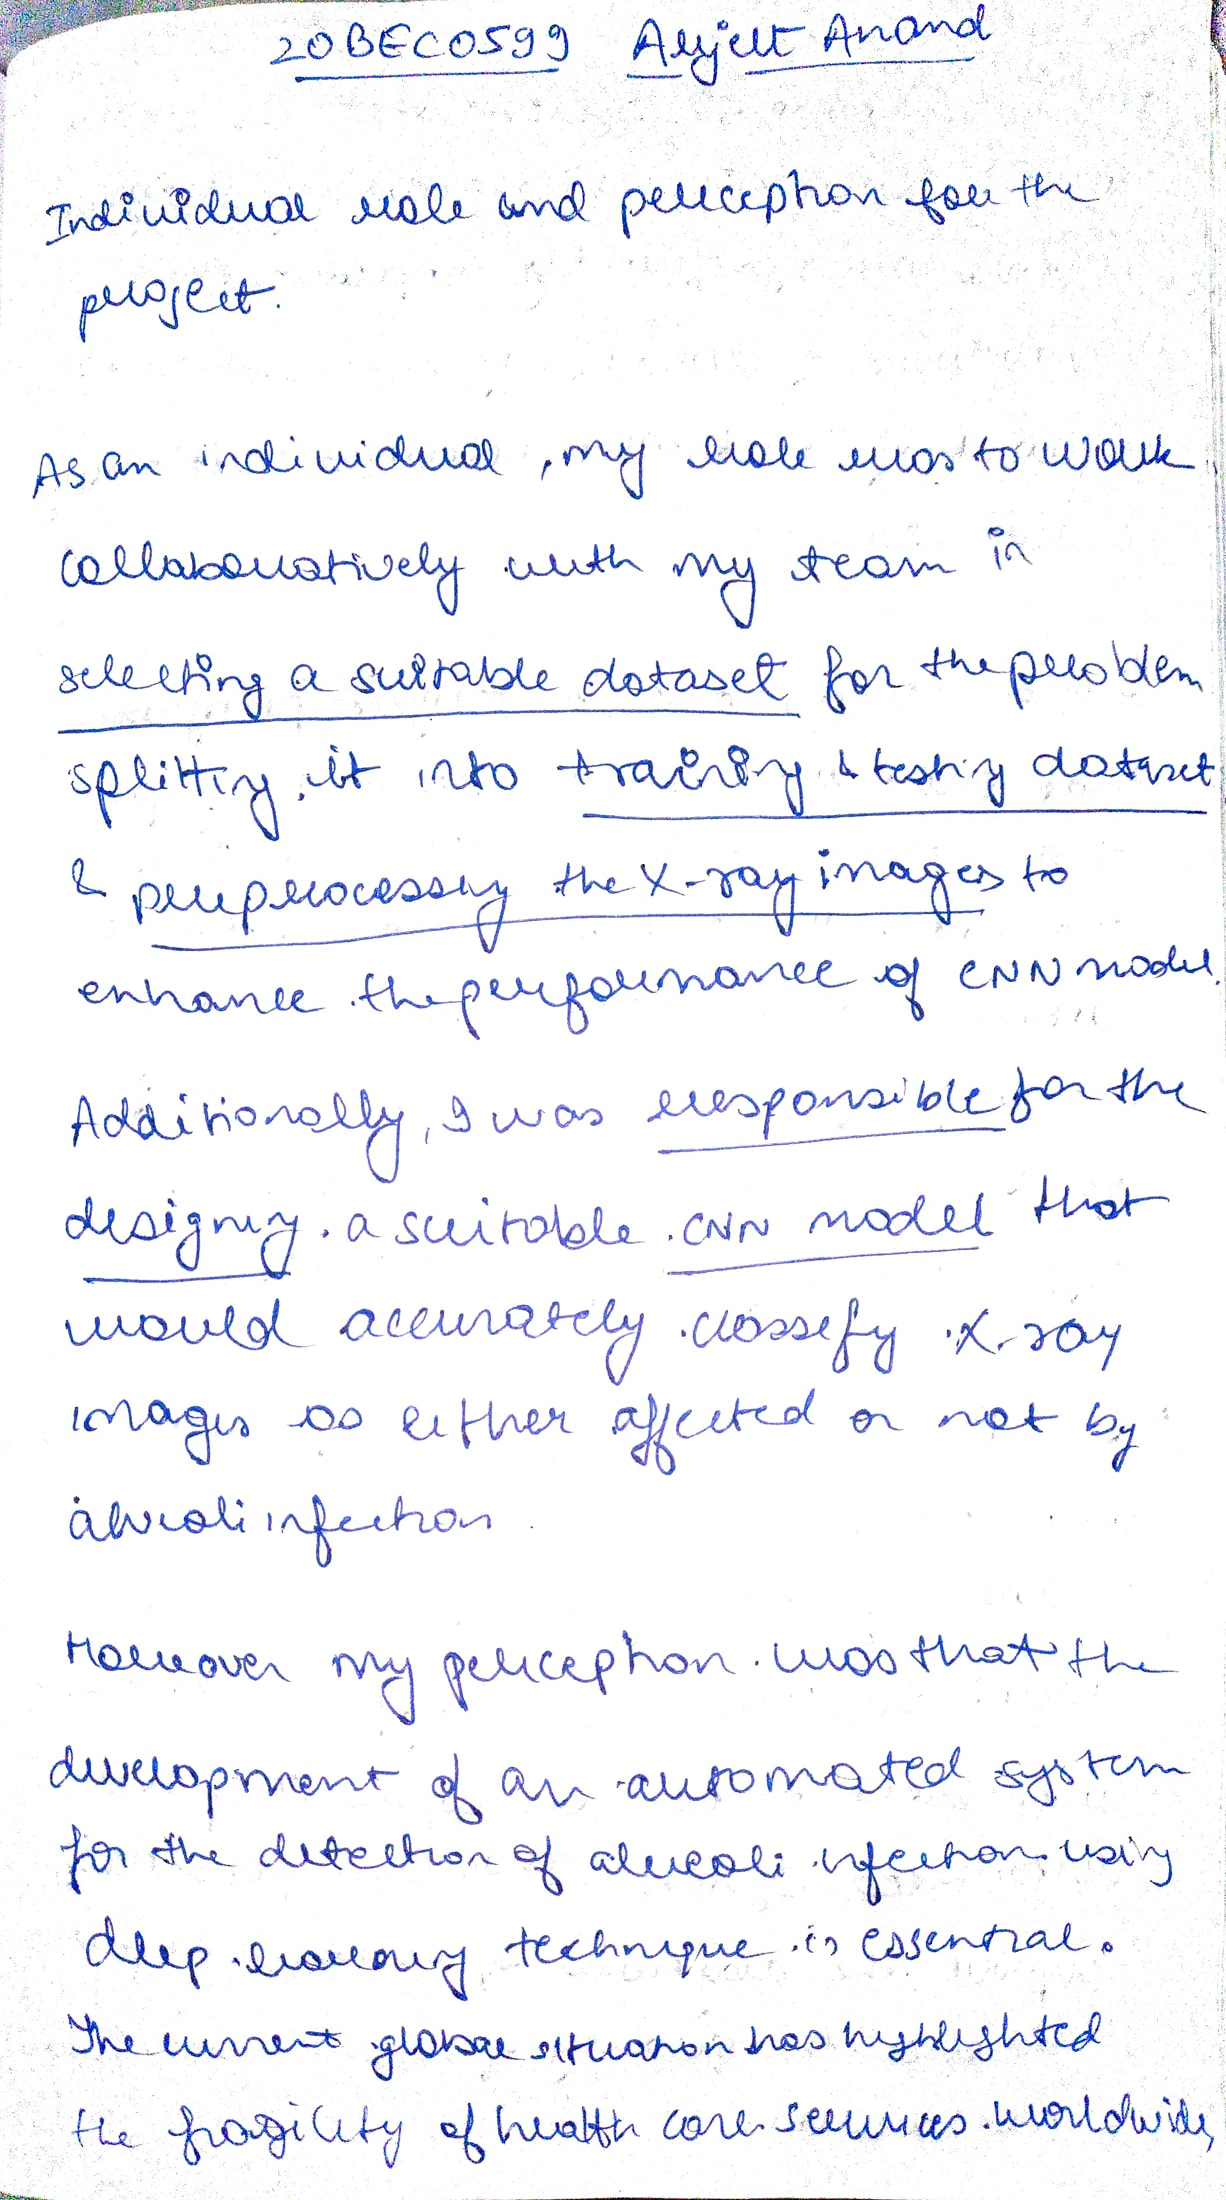 20BEC0599 Arjit Anand
Individual role and perception for the
project.
As an individual, my role was to work
collaboratively with my team in
selecting a suitable dataset for the problem
splitting it into training & testing dataset
& preprocessing the X-ray images to
enhance the performance of CNN model.
Additionally, I was responsible for the
designing a suitable CNN model that
would accurately classify X-ray
images as either affected or not by
alveoli infection
Moreover my perception was that the
development of an automated system
for the detection of alveoli infection using
deep learning technique is essential.
The current global situation has highlighted
the fragility of health care services worldwide,